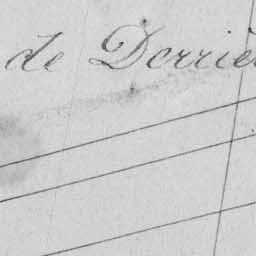 de Derriè